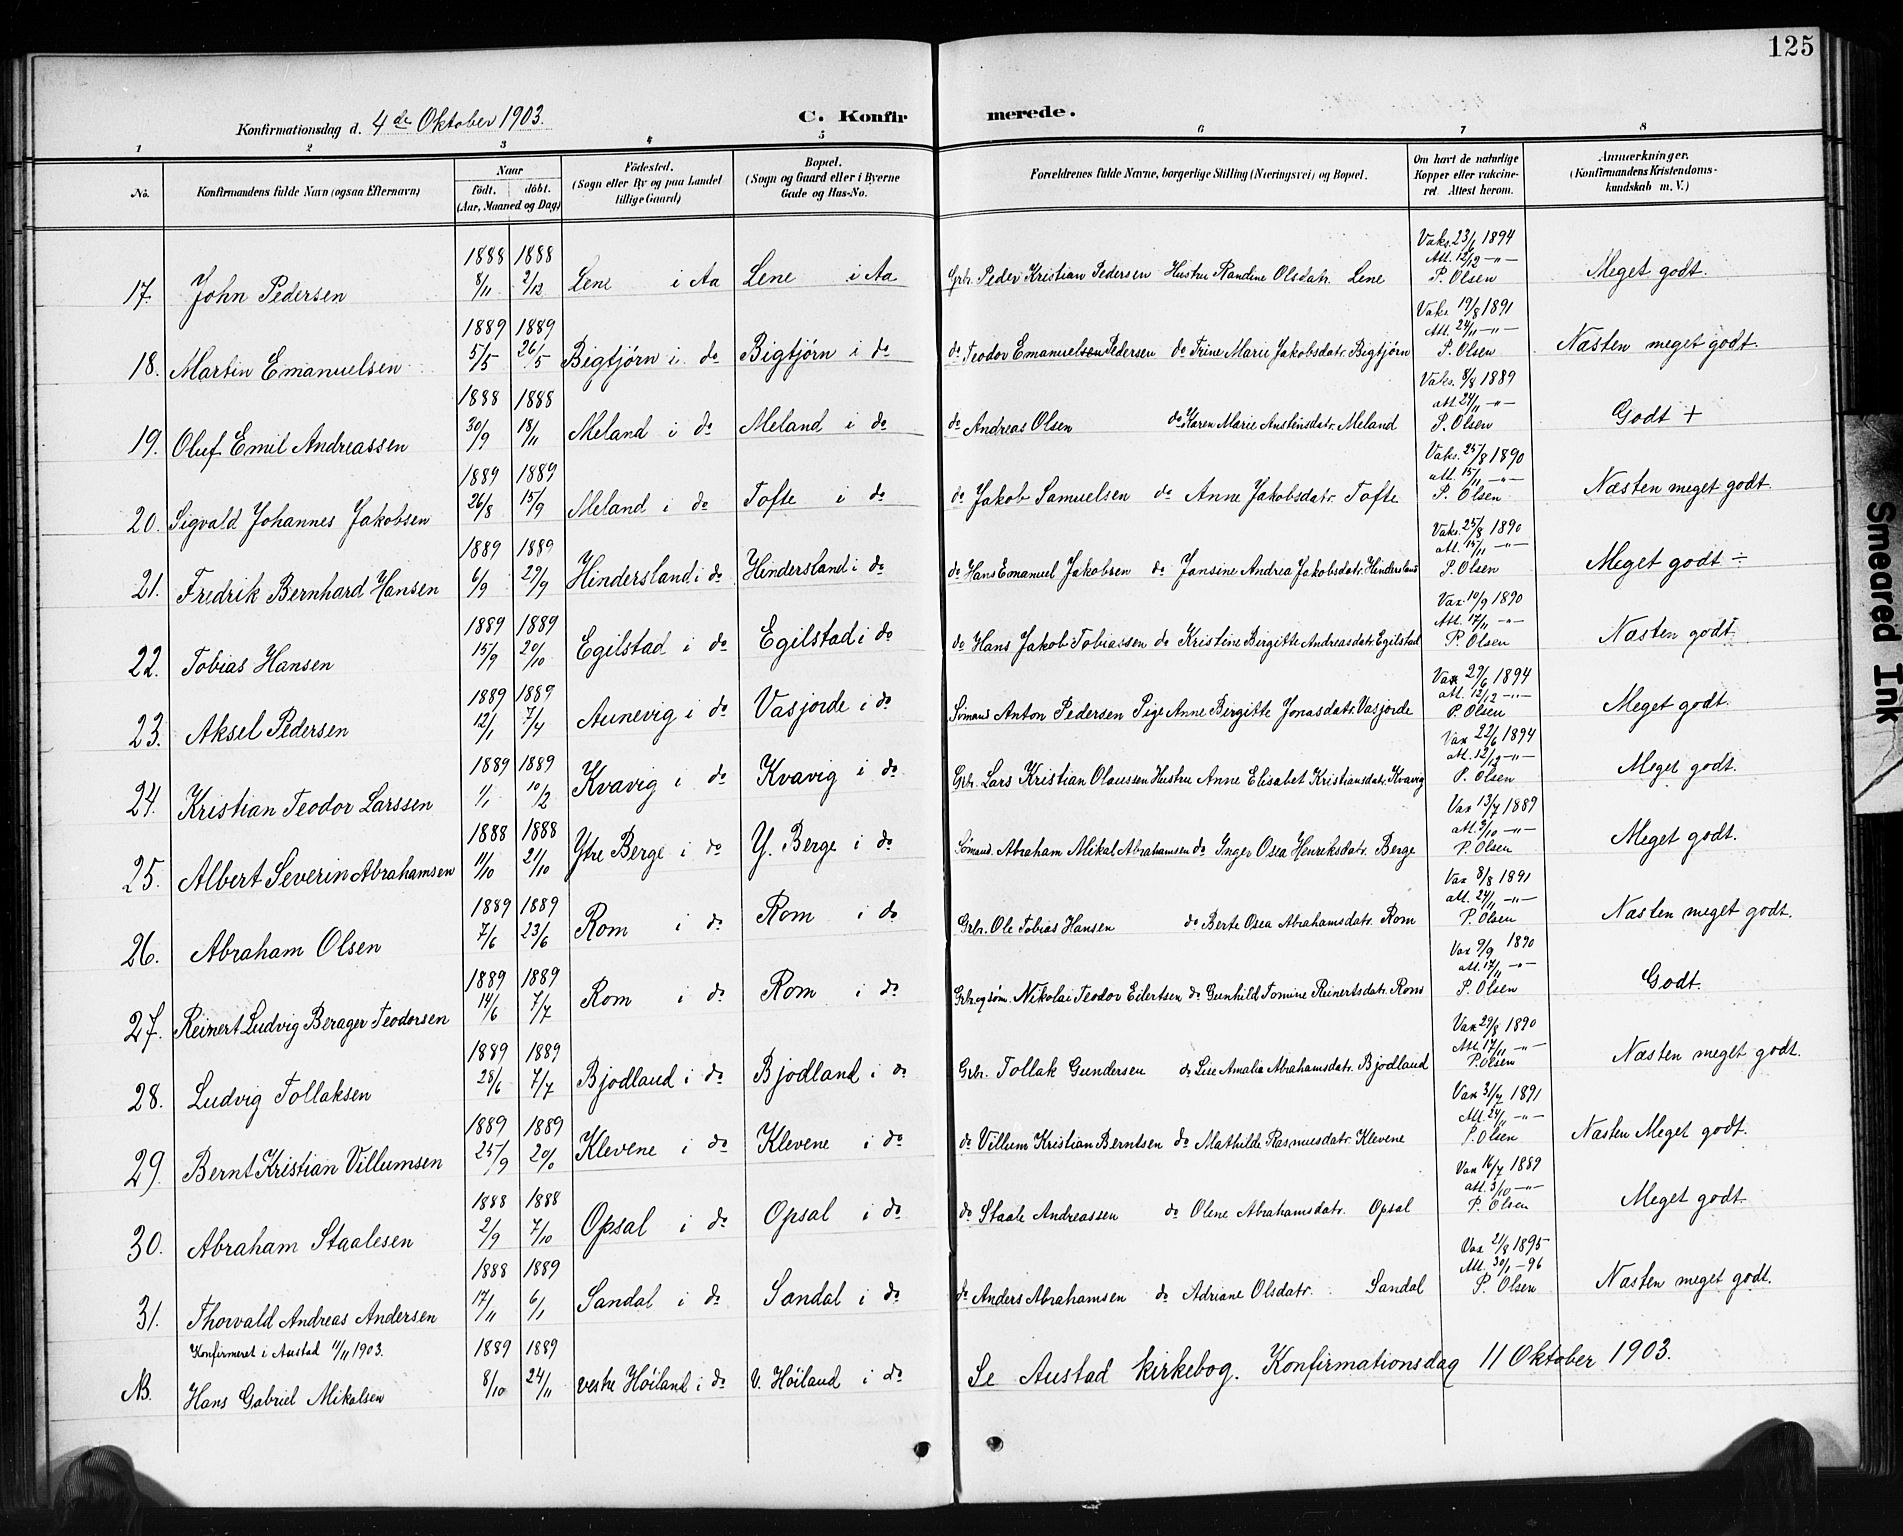 125
Konfirmationsdag d. 4de Oktober 1903.
C. Konfir merede.
1 2 3 4 5 6 7 8
No.
Konfirmandens fulde Navn (ogsaa Efternavn)
Naar født. døbt. (Aar, Maaned og Dag)
Fødested. (Sogn eller By og paa Landet tillige Gaard)
Bopæl. (Sogn og Gaard eller i Byerne Gade og Hus-No.
Forældrenes fulde Navne, borgerlige Stilling (Næringsvei) og Bopæl.
Om havt de naturlige Kopper eller vakcineret. Attest herom.
Anmærkninger. (Konfirmandens Kristendomskundskab m. V.)
17. John Pedersen 1888 8/11 1888 2/12 Lene i Aa Lene i Aa Grbr. Peder Kristian Pedersen Hustru Randine Olsdatr. Lene Vaks. 23/6 1894 Att. 12/12 -"- P. Olsen Meget godt.
18. Martin Emanuelsen 1889 5/5 1889 26/5 Bigtjørn i do Bigtjørn i do do Teodor Emanuelsen Pedersen do Trine Marie Jakobsdatr. Bigtjørn Vaks. 19/8 1891 Att. 24/11 -"- P. Olsen Næsten meget godt.
19. Oluf Emil Andreassen 1888 30/9 1888 18/11 Meland i do Meland i do do Andreas Olsen do Karen Marie Austinsdatr. Meland Vaks. 8/8 1889 att 24/11 -"- P. Olsen Godt +
20. Sigvald Johannes Jakobsen 1889 26/8 1889 15/9 Meland i do Tofte i do do Jakob Samuelsen do Anne Jakobsdatr. Tofte Vaks. 25/8 1890 att. 15/11 -"- P. Olsen Næsten meget godt.
21. Fredrik Bernhard Hansen 1889 6/9 1889 29/9 Hindersland i do Hindersland i do do Hans Emanuel Jakobsen do Jansine Andrea Jakobsdatr. Hindersland Vaks. 25/8 1890 att. 15/11 -"- P. Olsen Meget godt ÷
22. Tobias Hansen 1889 15/9 1889 20/10 Egilstad i do Egilstad i do do Hans Jakob Tobiassen do Kristine Birgitte Andreasdatr. Egilstad Vax. 10/9 1890 Att. 17/11 -"- P. Olsen Næsten godt.
23. Aksel Pedersen 1889 12/1 1889 7/4 Aunevig i do Vasjorde i do Sømand Anton Pedersen Pige Anne Birgitte Jonasdatr. Vasjorde Vax 29/6 1894 att. 12/12 -"- P. Olsen Meget godt.
24. Kristian Teodor Larssen 1889 1/1 1889 10/2 Kvavig i do Kvavig i do Grbr. Lars Kristian Olaussen Hustru Anne Elisabet Kristiansdatr. Kvavig Vax 22/6 1894 att. 12/12 -"- P. Olsen Meget godt.
25. Albert Severin Abrahamsen 1888 11/10 1888 21/10 Ytre Berge i do Y. Berge i do Sømand. Abraham Mikal Abrahamsen do Inger Osea Henriksdatr. Berge Vax 13/7 1889 att. 3/10 -"- P. Olsen Meget godt.
26. Abraham Olsen 1889 7/6 1889 23/6 Rom i do Rom i do Grbr. Ole Tobias Hansen do Berte Osea Abrahamsdatr. Rom Vax 8/8 1891 att. 24/11 -"- P. Olsen Næsten meget godt.
27. Reinert Ludvig Berager Teodorsen 1889 14/6 1889 7/7 Rom i do Rom i do Grbr. og søm. Nikolai Teodor Eilertsen do Gunhild Tomine Reinertsdatr. Rom Vax 9/9 1890 att. 17/11 -"- P. Olsen Godt.
28. Ludvig Tollaksen 1889 28/6 1889 7/7 Bjodland i do Bjodland i do Grbr. Tollak Gundersen do Lise Amalia Abrahamsdatr. Bjodland Vax 29/8 1890 Att. 17/11 -"- P. Olsen Næsten meget godt.
29. Bernt Kristian Villumsen 1889 25/9 1889 20/10 Klevene i do Klevene i do do Villum Kristian Berntsen do Mathilde Rasmusdatr. Klevene Vax 31/7 1891 Att. 24/11 -"- P. Olsen Næsten Meget godt.
30. Abraham Staalesen 1888 2/9 1888 7/10 Opsal i do Opsal i do do Staale Andreassen do Olene Abrahamsdatr. Opsal Vax 16/7 1889 att. 3/10 -"- P. Olsen Meget godt.
31. Thorvald Andreas Andersen 1888 17/11 1889 6/1 Sandal i do Sandal i do do Anders Abrahamsen do Adriane Olsdatr. Sandal Vax 2/8 1895 Att. 30/1 -96 P. Olsen Næsten meget godt.
Konfirmeret i Austad 11/11 1903.
NB. Hans Gabriel Mikalsen 1889 8/10 1889 24/11 vestre Høiland i do V. Høiland i do Se Austad kirkebog. Konfirmationsdag 11 Oktober 1903.
Smeared Ink